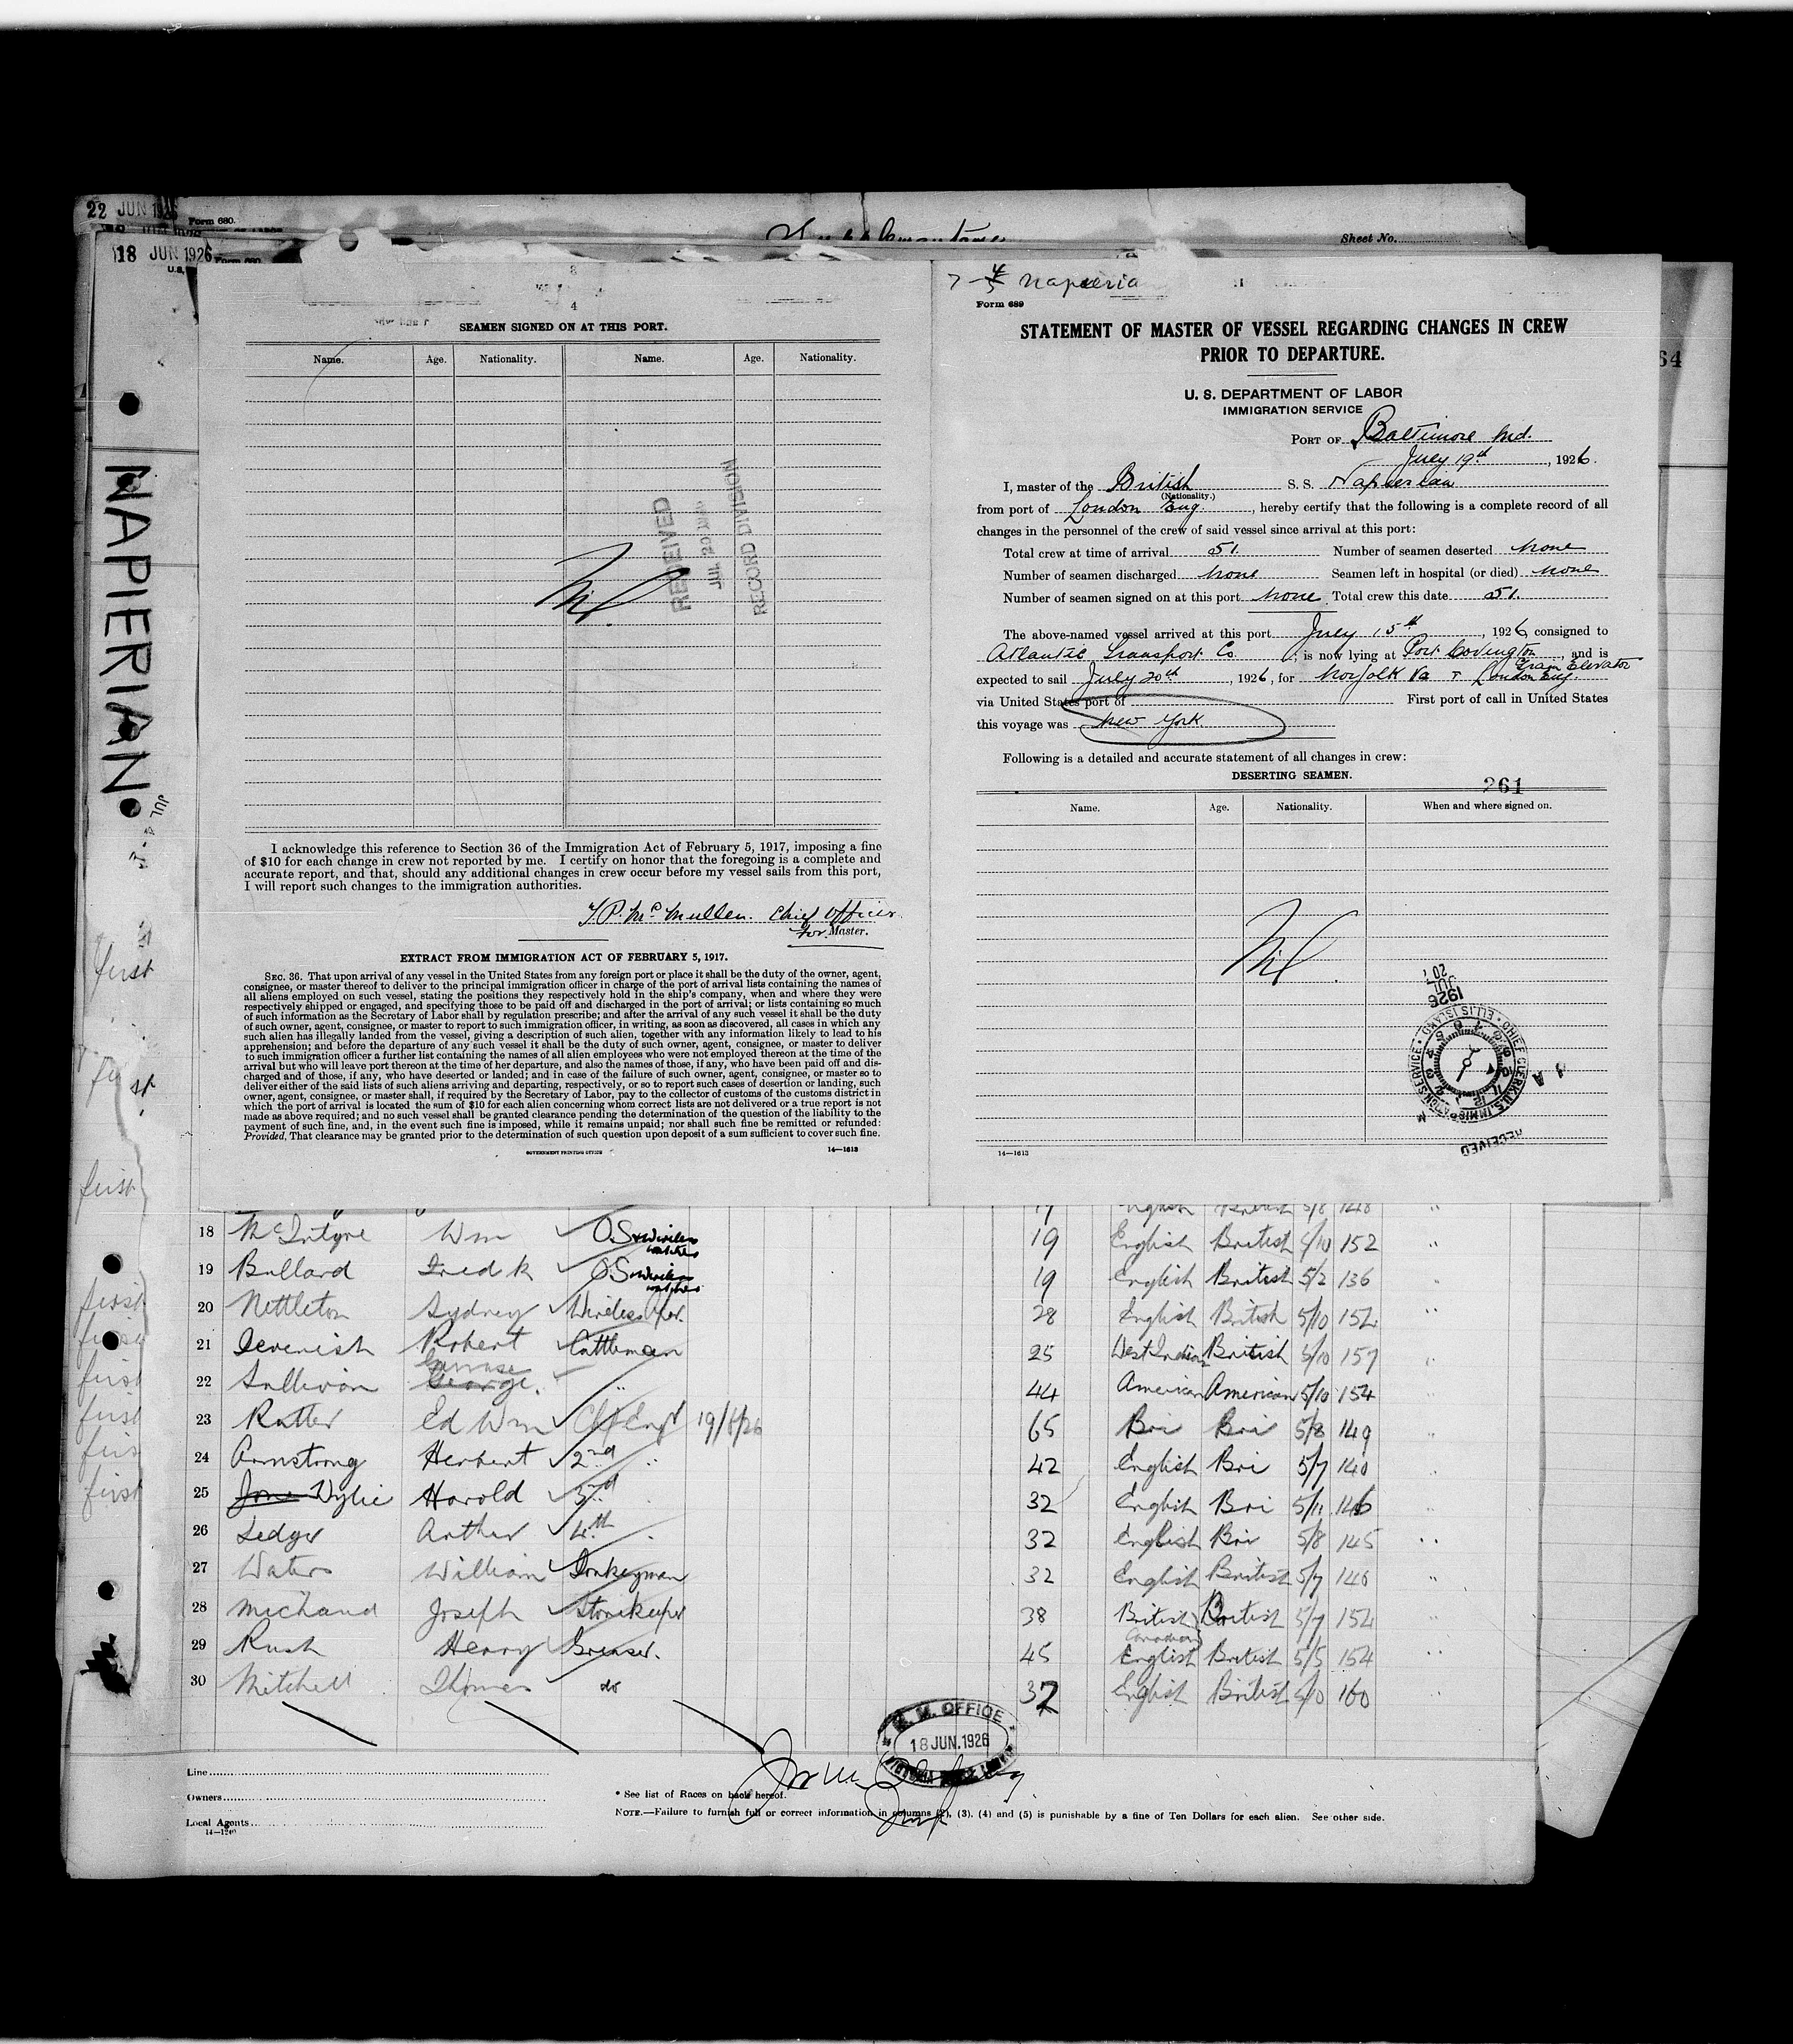 22 JUN 1926
Form 680.
Sheet No.
18 JUN 1926
NAPIERIAN
4
SEAMEN SIGNED ON AT THIS PORT.
Name. Age. Nationality. Name. Age. Nationality.
RECEIVED
JUL 20 1926
RECORD DIVISION
Nil
I acknowledge this reference to Section 36 of the Immigration Act of February 5, 1917, imposing a fine
of $10 for each change in crew not reported by me. I certify on honor that the foregoing is a complete and
accurate report, and that, should any additional changes in crew occur before my vessel sails from this port,
I will report such changes to the immigration authorities.
T. P. McMullen. Chief Officer
for Master.
EXTRACT FROM IMMIGRATION ACT OF FEBRUARY 5, 1917.
SEC. 36. That upon arrival of any vessel in the United States from any foreign port or place it shall be the duty of the owner, agent,
consignee, or master thereof to deliver to the principal immigration officer in charge of the port of arrival lists containing the names of
all aliens employed on such vessel, stating the positions they respectively hold in the ship's company, when and where they were
respectively shipped or engaged, and specifying those to be paid off and discharged in the port of arrival; or lists containing so much
of such information as the Secretary of Labor shall by regulation prescribe; and after the arrival of any such vessel it shall be the duty
of such owner, agent, consignee, or master to report to such immigration officer, in writing, as soon as discovered, all cases in which any
such alien has illegally landed from the vessel, giving a description of such alien, together with any information likely to lead to his
apprehension; and before the departure of any such vessel it shall be the duty of such owner, agent, consignee, or master to deliver
to such immigration officer a further list containing the names of all alien employees who were not employed thereon at the time of the
arrival but who will leave port thereon at the time of her departure, and also the names of those, if any, who have been paid off and dis-
charged and of those, if any, who have deserted or landed; and in case of the failure of such owner, agent, consignee, or master so to
deliver either of the said lists of such aliens arriving and departing, respectively, or so to report such cases of desertion or landing, such
owner, agent, consignee, or master shall, if required by the Secretary of Labor, pay to the collector of customs of the customs district in
which the port of arrival is located the sum of $10 for each alien concerning whom correct lists are not delivered or a true report is not
made as above required; and no such vessel shall be granted clearance pending the determination of the question of the liability to the
payment of such fine, and, in the event such fine is imposed, while it remains unpaid; nor shall such fine be remitted or refunded:
Provided, That clearance may be granted prior to the determination of such question upon deposit of a sum sufficient to cover such fine.
GOVERNMENT PRINTING OFFICE 14—1613
Form 689
STATEMENT OF MASTER OF VESSEL REGARDING CHANGES IN CREW
PRIOR TO DEPARTURE.
U. S. DEPARTMENT OF LABOR
IMMIGRATION SERVICE
PORT OF Baltimore Md.
July 19th, 1926.
I, master of the British S. S. Napierian
(Nationality.)
from port of London Eng., hereby certify that the following is a complete record of all
changes in the personnel of the crew of said vessel since arrival at this port:
Total crew at time of arrival 51. Number of seamen deserted None
Number of seamen discharged None Seamen left in hospital (or died) None
Number of seamen signed on at this port None Total crew this date 51.
The above-named vessel arrived at this port July 15th, 1926, consigned to
Atlantic Transport Co., is now lying at Port Covington, and is
Grain Elevator
expected to sail July 20th, 1926, for Norfolk Va + London Eng.
via United States port of First port of call in United States
this voyage was New York
Following is a detailed and accurate statement of all changes in crew:
DESERTING SEAMEN.
261
Name. Age. Nationality. When and where signed on.
Nil
1926
CHIEF CLERK U.S. IMMIGRATION SERVICE ELLIS ISLAND
RECEIVED
14—1613
64
18 McIntyre Wm O.S + Wireless watcher 19 English British 5/10 152 "
19 Bullard Fredk O.S + Wireless watcher 19 English British 5/2 136 "
first 20 Nettleton Sydney Wireless Opr. 28 English British 5/10 152 "
first 21 Devenish Robert Cattleman 25 West Indian British 5/10 157 "
first 22 Sullivan George " 44 American American 5/10 154
first 23 Rutter Ed Wm Chf Engr 19/6/26 65 Bri Bri 5/8 149 "
first 24 Armstrong Herbert 2nd " 42 English Bri 5/7 140 "
first 25 Jone Wylie Harold 3rd 32 English Bri 5/11 146 "
26 Ledger Arthur 4th 32 English Bri 5/8 145 "
27 Waters William Donkeyman 32 English British 5/7 146 "
28 Michaud Joseph Storekeeper 38 British Canadian British 5/7 152 "
29 Rush Henry Greaser. 45 English British 5/5 154 "
30 Mitchell Thomas do 37 English British 5/10 160 "
M. M. OFFICE
18 JUN.1926
Line
Owners
Local Agents
14—1240
* See list of Races on back hereof.
NOTE.—Failure to furnish full or correct information in columns (2), (3), (4) and (5) is punishable by a fine of Ten Dollars for each alien. See other side.